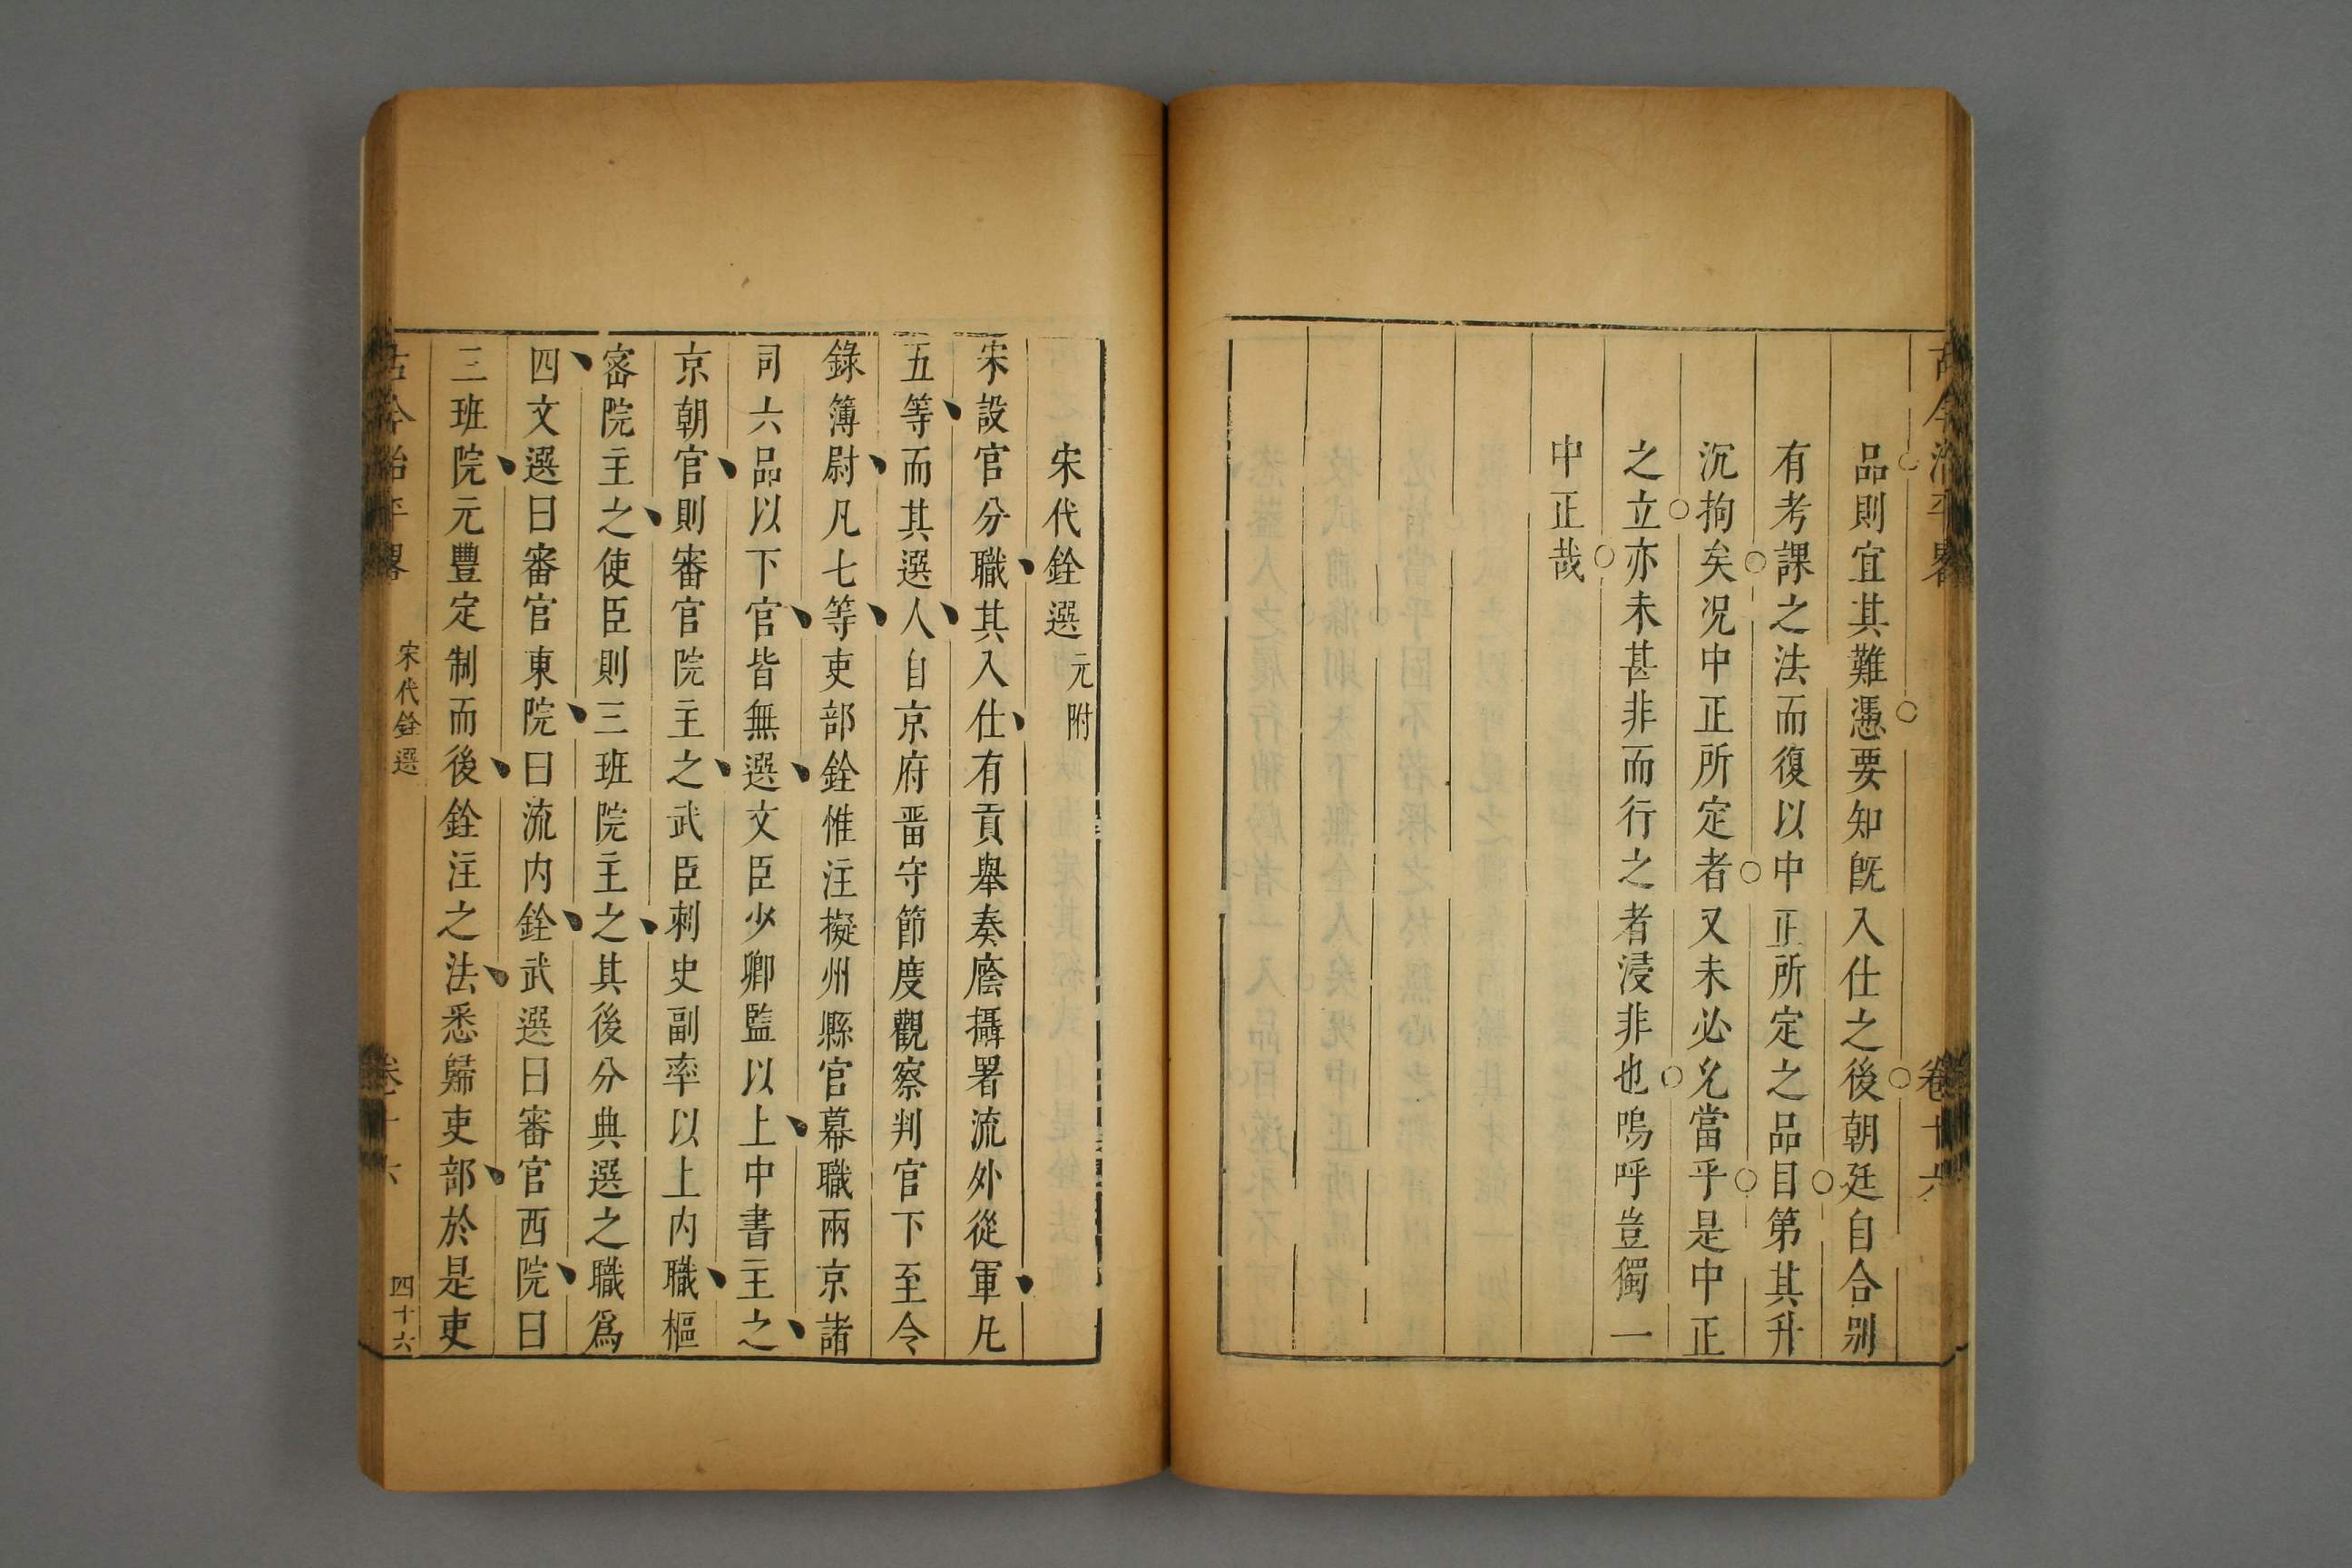 品則宜其難憑要知旣入仕之後朝廷自合别
有考課之法而復以中正所定之品目第其升
沉拘矣况中正所定者又未必允當乎是中正
之立亦未甚非而行之者浸非也嗚呼豈獨一
中正哉
宋代銓選元附
宋設官分職其入仕有貢舉奏廕攝署流外從軍凡
五等而其選人自京府畱守節度觀察判官下至令
錄簿尉凡七等吏部銓惟注擬州縣官幕職兩京諸
司六品以下官皆無選文臣少卿監以上中書主之
京朝官則審官院主之武臣刺史副率以上内職樞
宻院主之使臣則三班院主之其後分典選之職爲
四文選曰審官東院曰流内銓武選曰審官西院曰
三班院元豐定制而後銓注之法悉歸吏部於是吏
古今治平畧 宋代銓選 卷十六 四十六